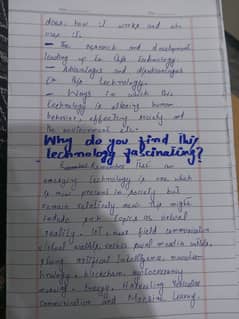 does, how it works and who
uses it.
- The research and development
leading up to this technology.
- Advantages and disadvantages
for this technology.
- Ways in which this
technology is altering human
behavior, affecting society and
the environment etc.
Why do you find this
technology fascinating?
Remember that an
emerging technology is one which
is now present in society but
remain relatively new. This might
include such topics as virtual
reality, IoT, near field communication
social media
artificial intelligence,
blockchain, cryptocurrency
mining, Energy Harvesting
Communication and Machine Learning.